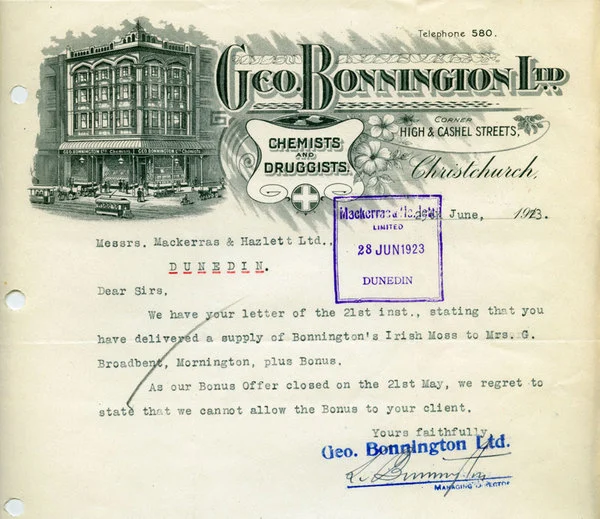 Telephone 580.
GEO. BONNINGTON LTD.
CORNER
HIGH & CASHEL STREETS,
CHEMISTS
AND
DRUGGISTS.
Christchurch,
June, 1923.
Mackerras & Hazlett
LIMITED
28 JUN 1923
DUNEDIN
Messrs. Mackerras & Hazlett Ltd.,
DUNEDIN.
Dear Sirs,
We have your letter of the 21st inst., stating that you
have delivered a supply of Bonnington's Irish Moss to Mrs. G.
Broadbent, Mornington, plus Bonus.
As our Bonus Offer closed on the 21st May, we regret to
state that we cannot allow the Bonus to your client.
Yours faithfully
Geo. Bonnington Ltd.
MANAGING DIRECTOR